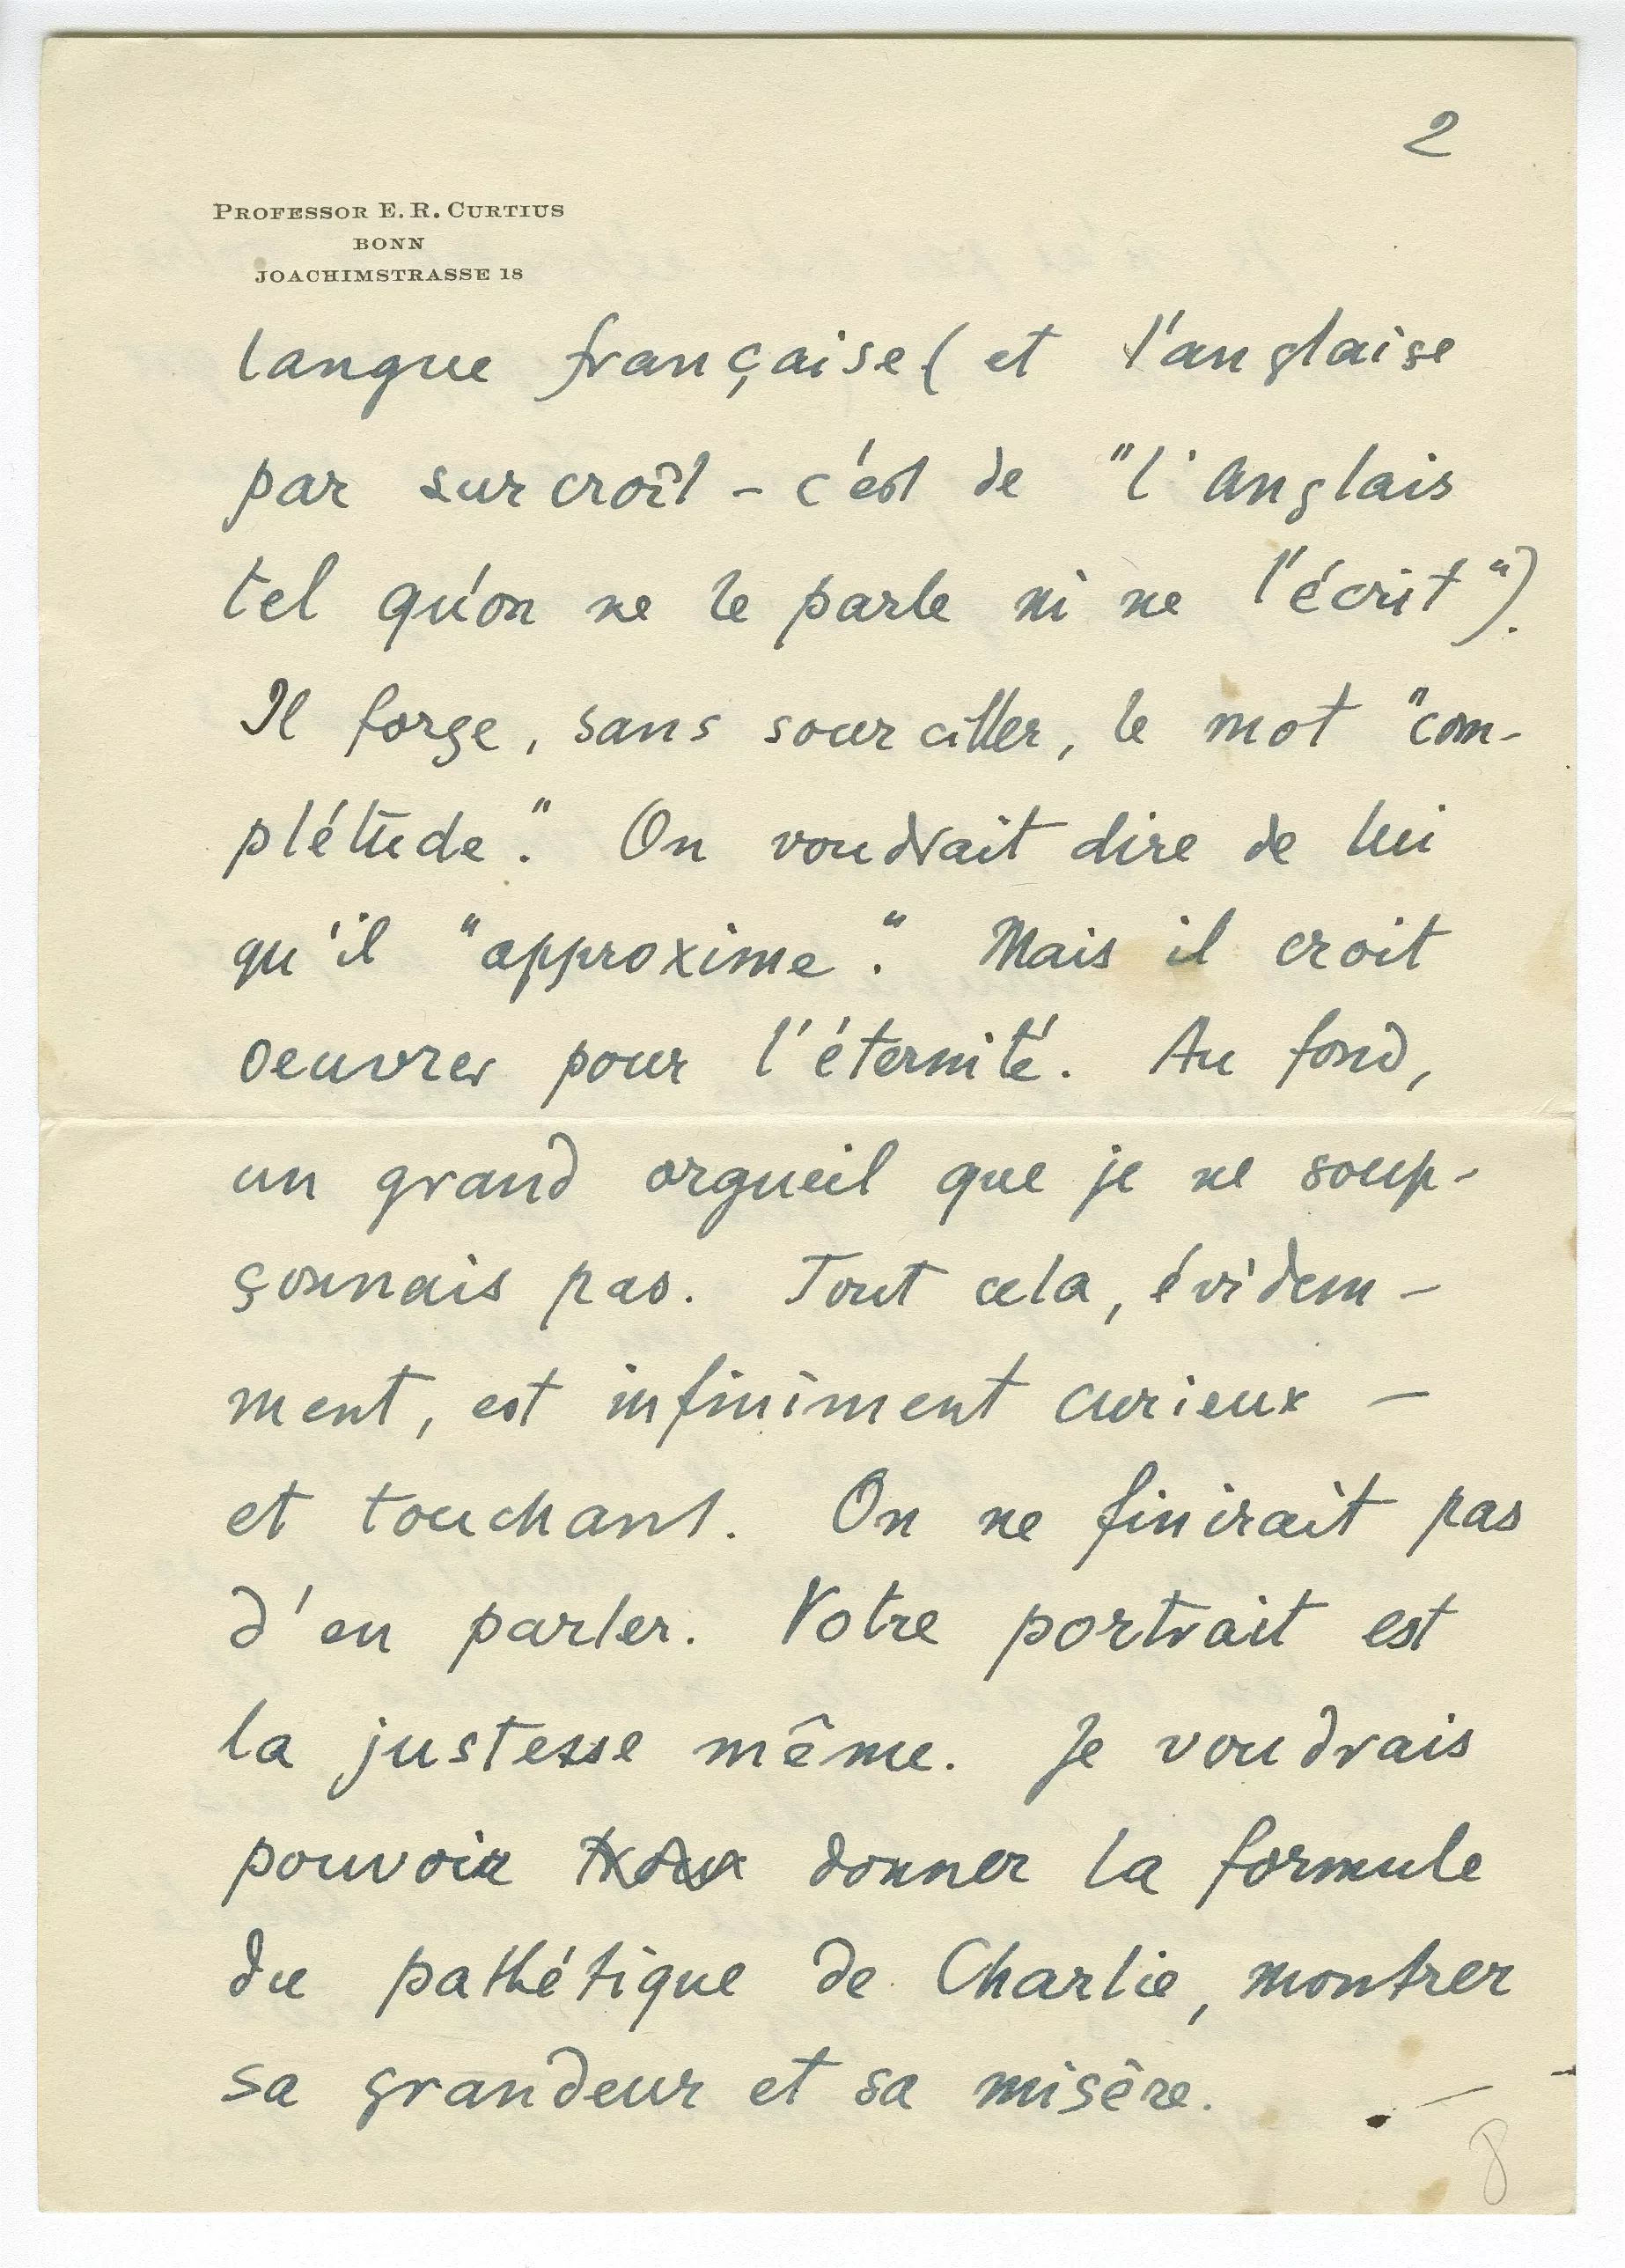 2
PROFESSOR E. R. CURTIUS
BONN
JOACHIMSTRASSE 18
langue française (et l'anglaise
par surcroît – c'est de "l'anglais
tel qu'on ne le parle ni ne l'écrit").
Il forge, sans sourciller, le mot "com-
plétude". On voudrait dire de lui
qu'il "approxime". Mais il croit
oeuvrer pour l'éternité. Au fond,
un grand orgueil que je ne soup-
çonnais pas. Tout cela, évidem-
ment, est infiniment curieux –
et touchant. On ne finirait pas
d'en parler. Votre portrait est
la justesse même. Je voudrais
pouvoir donner la formule
du pathétique de Charlie, montrer
sa grandeur et sa misère. –
8